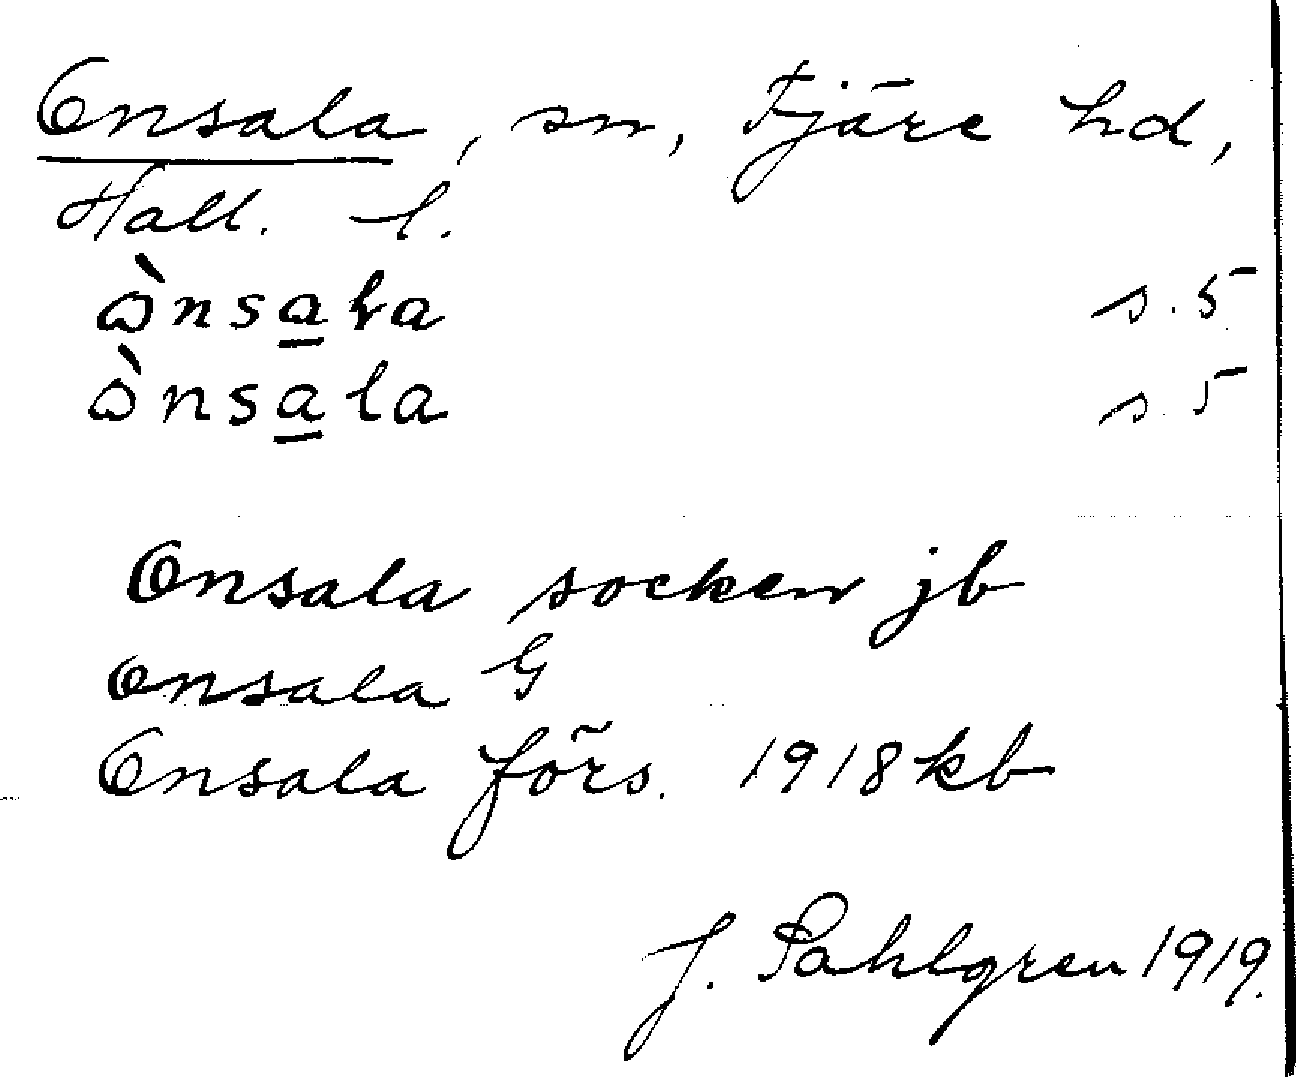 Onsala, sn, Fjäre hd,
Hall. l.
ò̀nsa̲ɫa s. 5
ò̀nsa̲la s. 5
Onsala socken jb
Onsala G
Onsala förs. 1918 kb
J. Sahlgren 1919.